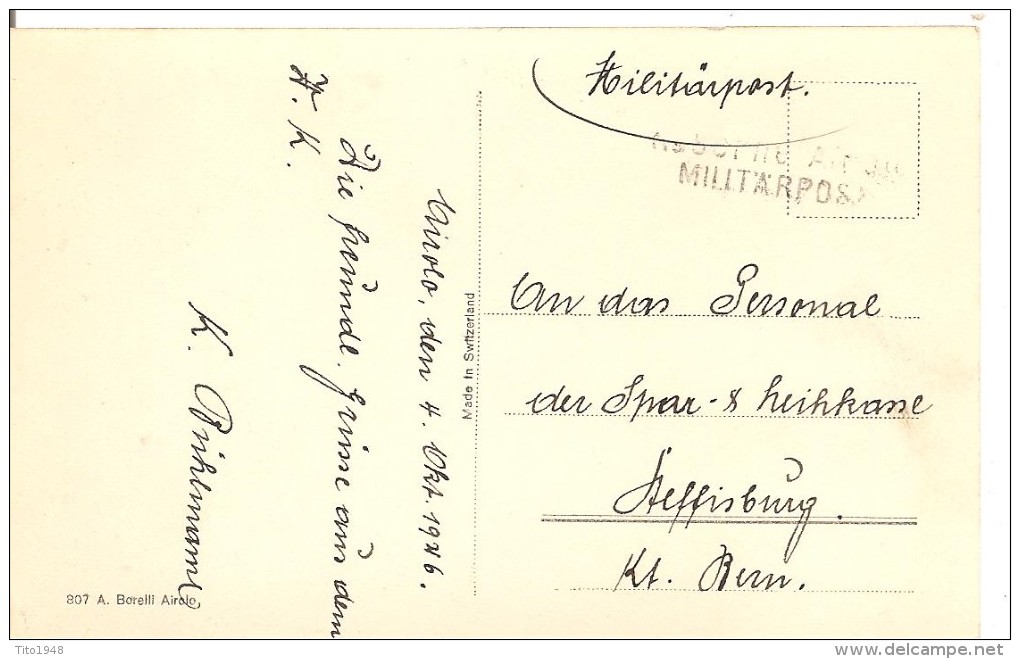 Militärpost.
MILITÄRPOS
An das Personal
der Spar- & Leihkasse
Steffisburg.
Kt. Bern.
Made in Switzerland
Airolo, den 4. Okt. 1946.
Die freundl. Grüsse aus dem
W. K.
K. Bühlmann
807 A. Borelli Airolo
Tito1948
www.delcampe.net